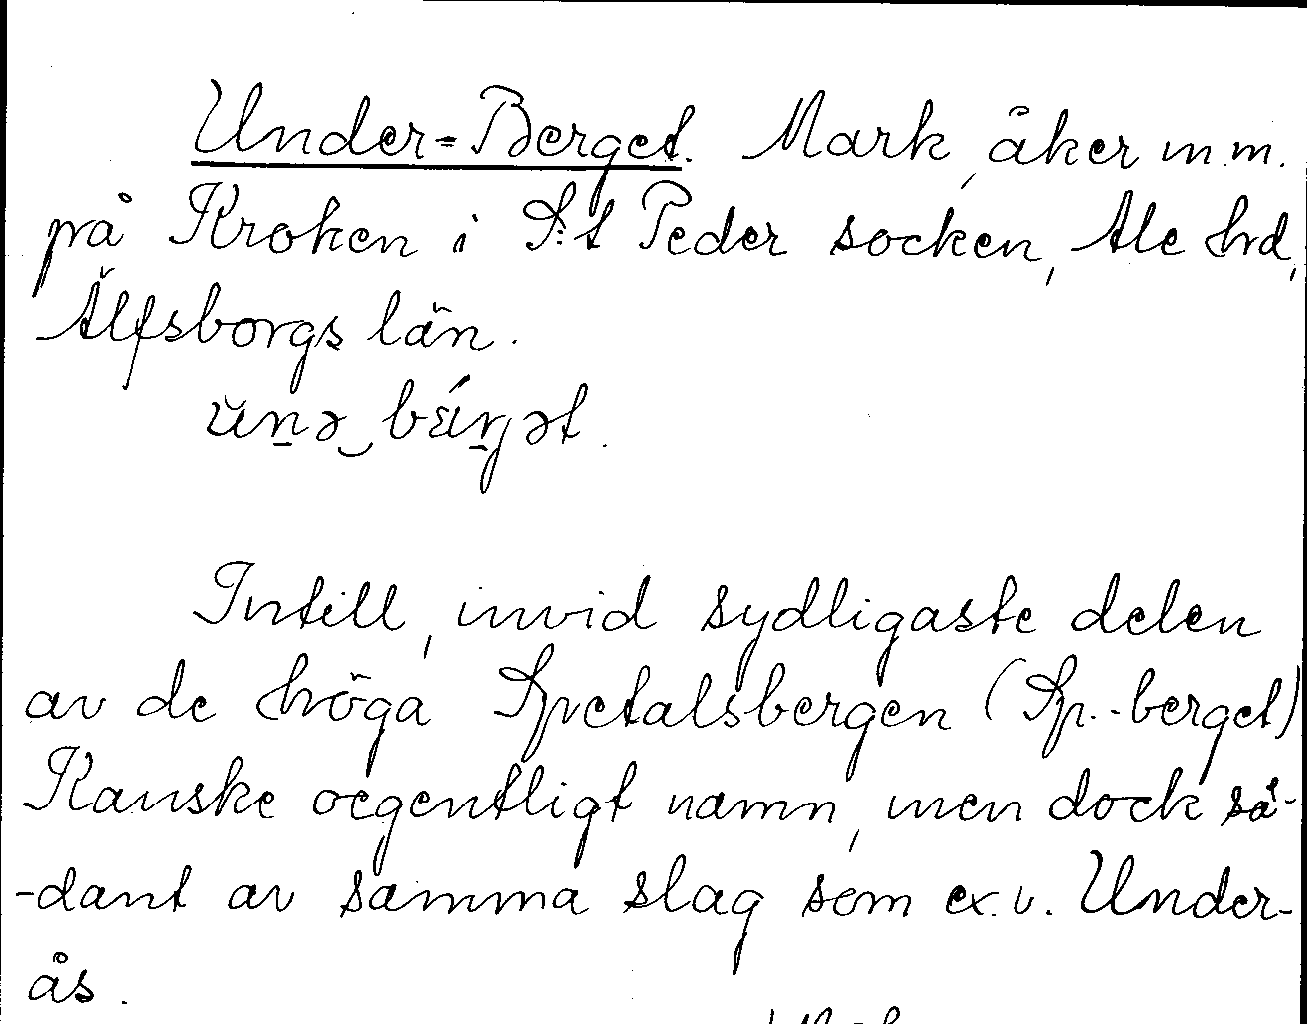 Under-Berget. Mark, åker m.m.
på Kroken i S:t Peder socken, Ale hrd,
Älfsborgs län.
Intill, invid sydligaste delen
av de höga Spetalsbergen (Sp.-berget)
Kanske oegentligt namn, men dock så-
-dant av samma slag som ex.v. Under-
ås.